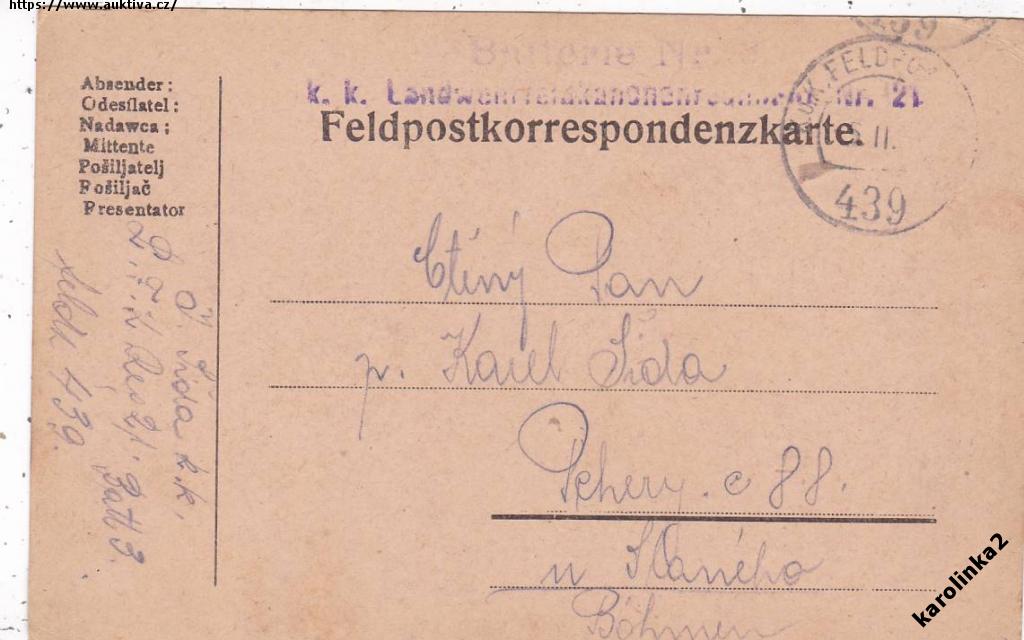 https://www.auktiva.cz/
439
Batterie Nr.
k. k. Landwehrfeldkanonenregiment Nr. 21
Feldpostkorrespondenzkarte.
K.u.K. FELDPO
II.
439
Absender:
Odesílatel:
Nadawca:
Mittente
Pošiljatelj
Pošiljač
Presentator
Šída k.k.
21. Batt 3.
feld 439.
Ctěný Pan
p. Karel Šída
Pchery. c 88.
u Slaného
Böhmen
karolinka2